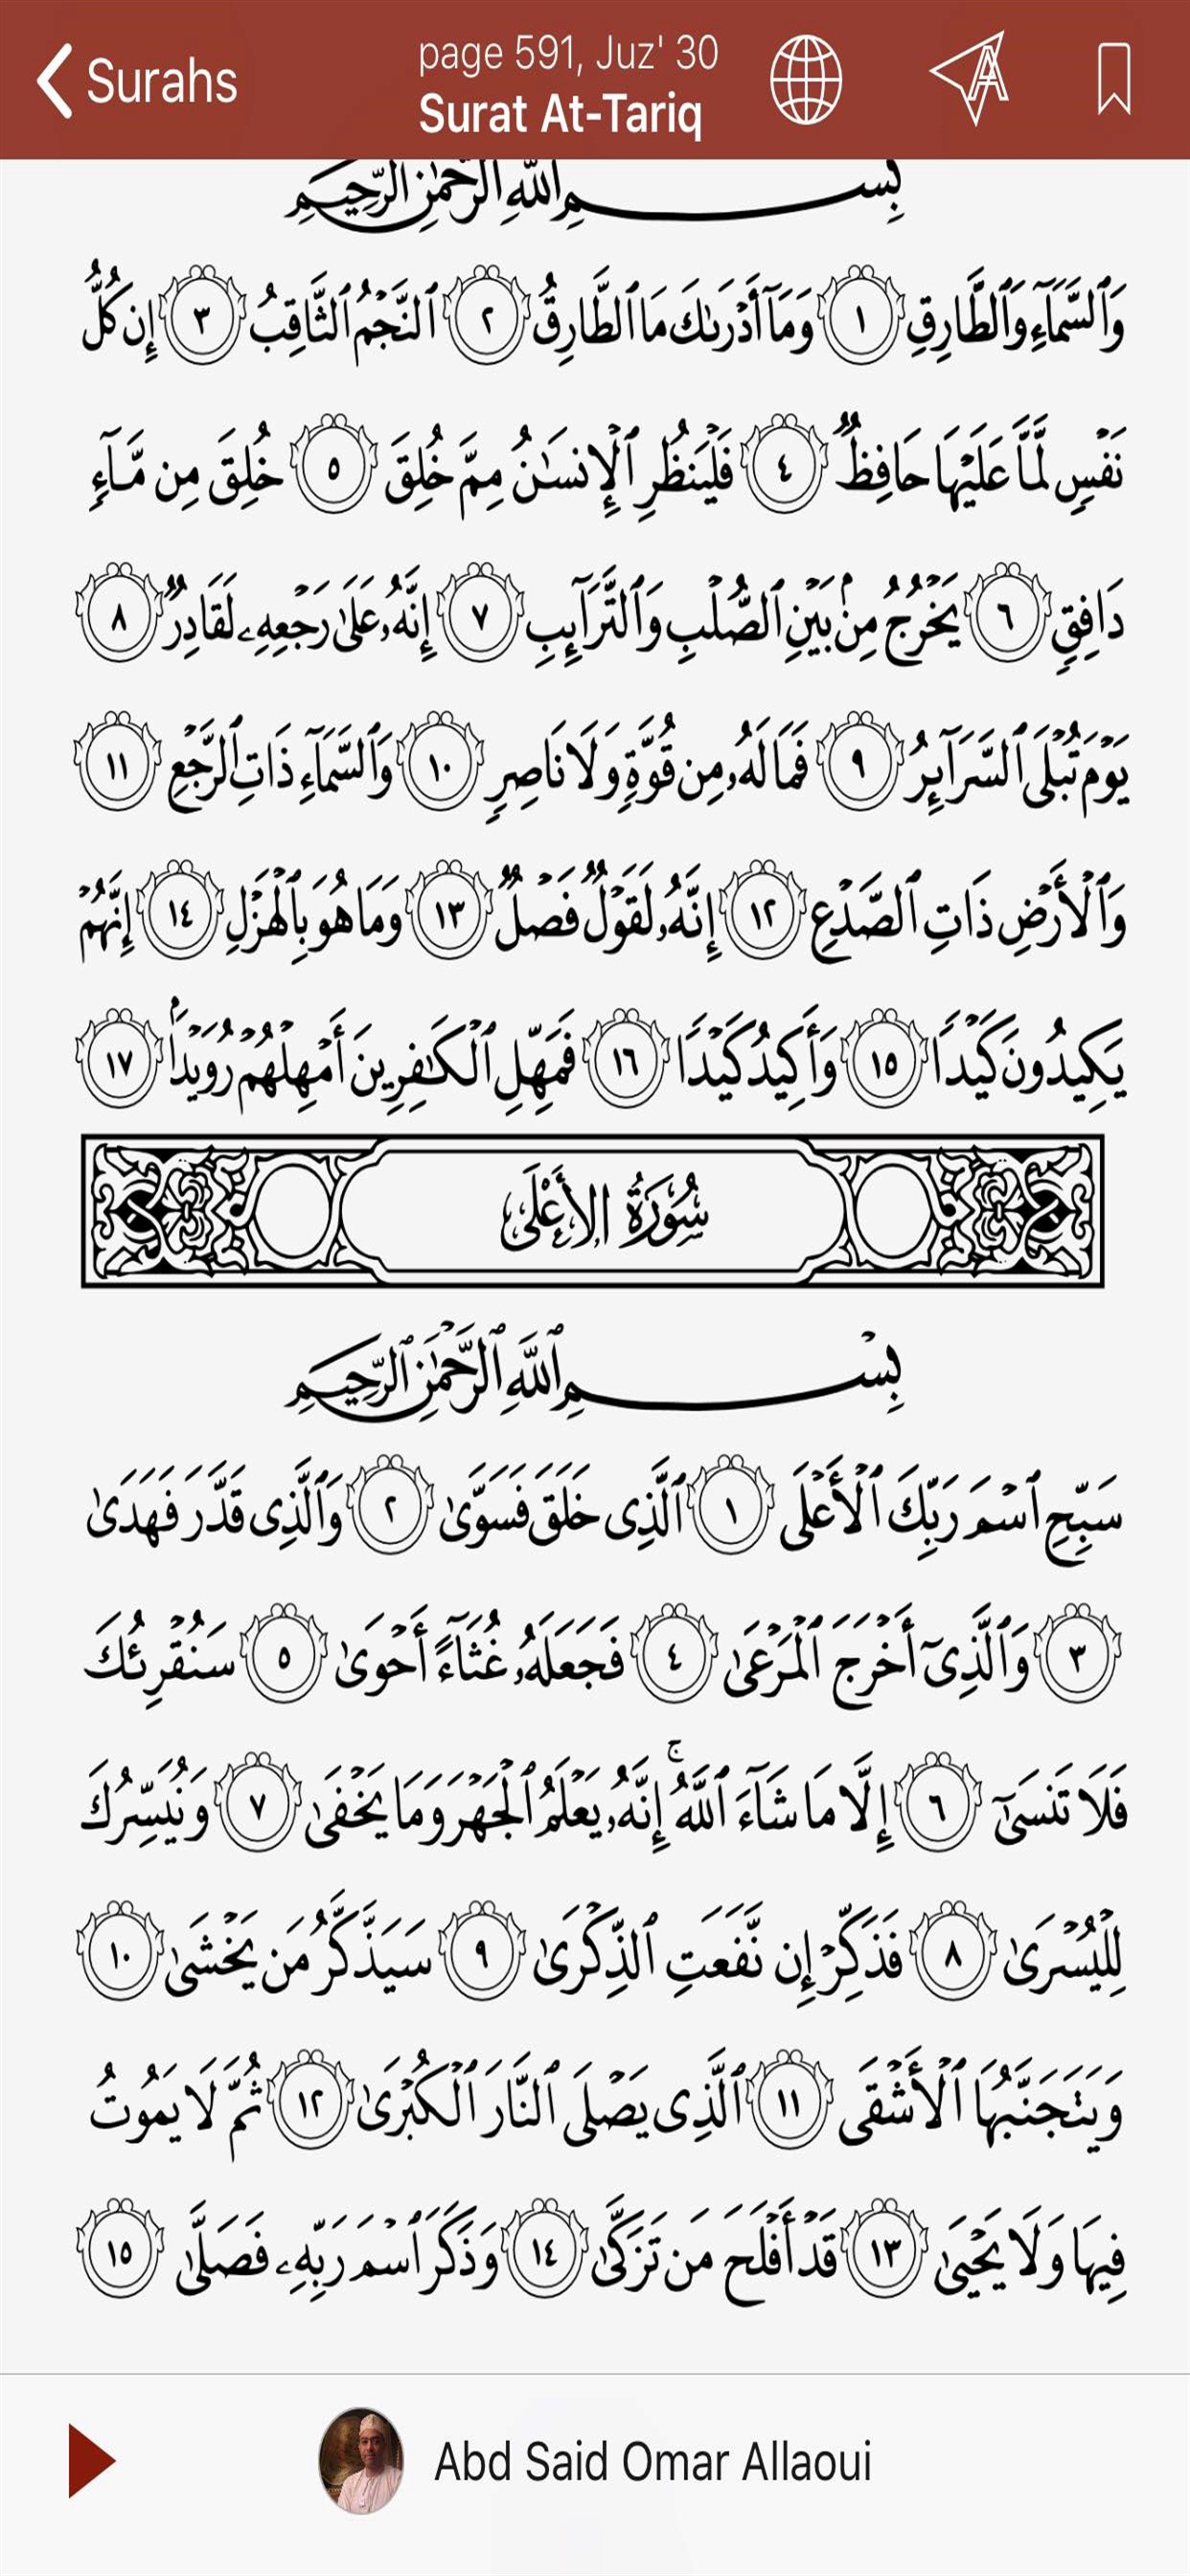 Surahs
page 591, Juz' 30
Surat At-Tariq
بِسْمِ ٱللَّهِ ٱلرَّحْمَٰنِ ٱلرَّحِيمِ
وَٱلسَّمَآءِ وَٱلطَّارِقِ ١ وَمَآ أَدْرَىٰكَ مَا ٱلطَّارِقُ ٢ ٱلنَّجْمُ ٱلثَّاقِبُ ٣ إِن كُلُّ
نَفْسٍ لَّمَّا عَلَيْهَا حَافِظٌ ٤ فَلْيَنظُرِ ٱلْإِنسَٰنُ مِمَّ خُلِقَ ٥ خُلِقَ مِن مَّآءٍ
دَافِقٍ ٦ يَخْرُجُ مِنۢ بَيْنِ ٱلصُّلْبِ وَٱلتَّرَآئِبِ ٧ إِنَّهُۥ عَلَىٰ رَجْعِهِۦ لَقَادِرٌ ٨
يَوْمَ تُبْلَى ٱلسَّرَآئِرُ ٩ فَمَا لَهُۥ مِن قُوَّةٍ وَلَا نَاصِرٍ ١٠ وَٱلسَّمَآءِ ذَاتِ ٱلرَّجْعِ ١١
وَٱلْأَرْضِ ذَاتِ ٱلصَّدْعِ ١٢ إِنَّهُۥ لَقَوْلٌ فَصْلٌ ١٣ وَمَا هُوَ بِٱلْهَزْلِ ١٤ إِنَّهُمْ
يَكِيدُونَ كَيْدًا ١٥ وَأَكِيدُ كَيْدًا ١٦ فَمَهِّلِ ٱلْكَٰفِرِينَ أَمْهِلْهُمْ رُوَيْدَۢا ١٧
سُورَةُ الأَعْلَى
بِسْمِ ٱللَّهِ ٱلرَّحْمَٰنِ ٱلرَّحِيمِ
سَبِّحِ ٱسْمَ رَبِّكَ ٱلْأَعْلَى ١ ٱلَّذِى خَلَقَ فَسَوَّىٰ ٢ وَٱلَّذِى قَدَّرَ فَهَدَىٰ
٣ وَٱلَّذِىٓ أَخْرَجَ ٱلْمَرْعَىٰ ٤ فَجَعَلَهُۥ غُثَآءً أَحْوَىٰ ٥ سَنُقْرِئُكَ
فَلَا تَنسَىٰٓ ٦ إِلَّا مَا شَآءَ ٱللَّهُ ۚ إِنَّهُۥ يَعْلَمُ ٱلْجَهْرَ وَمَا يَخْفَىٰ ٧ وَنُيَسِّرُكَ
لِلْيُسْرَىٰ ٨ فَذَكِّرْ إِن نَّفَعَتِ ٱلذِّكْرَىٰ ٩ سَيَذَّكَّرُ مَن يَخْشَىٰ ١٠
وَيَتَجَنَّبُهَا ٱلْأَشْقَى ١١ ٱلَّذِى يَصْلَى ٱلنَّارَ ٱلْكُبْرَىٰ ١٢ ثُمَّ لَا يَمُوتُ
فِيهَا وَلَا يَحْيَىٰ ١٣ قَدْ أَفْلَحَ مَن تَزَكَّىٰ ١٤ وَذَكَرَ ٱسْمَ رَبِّهِۦ فَصَلَّىٰ ١٥
Abd Said Omar Allaoui